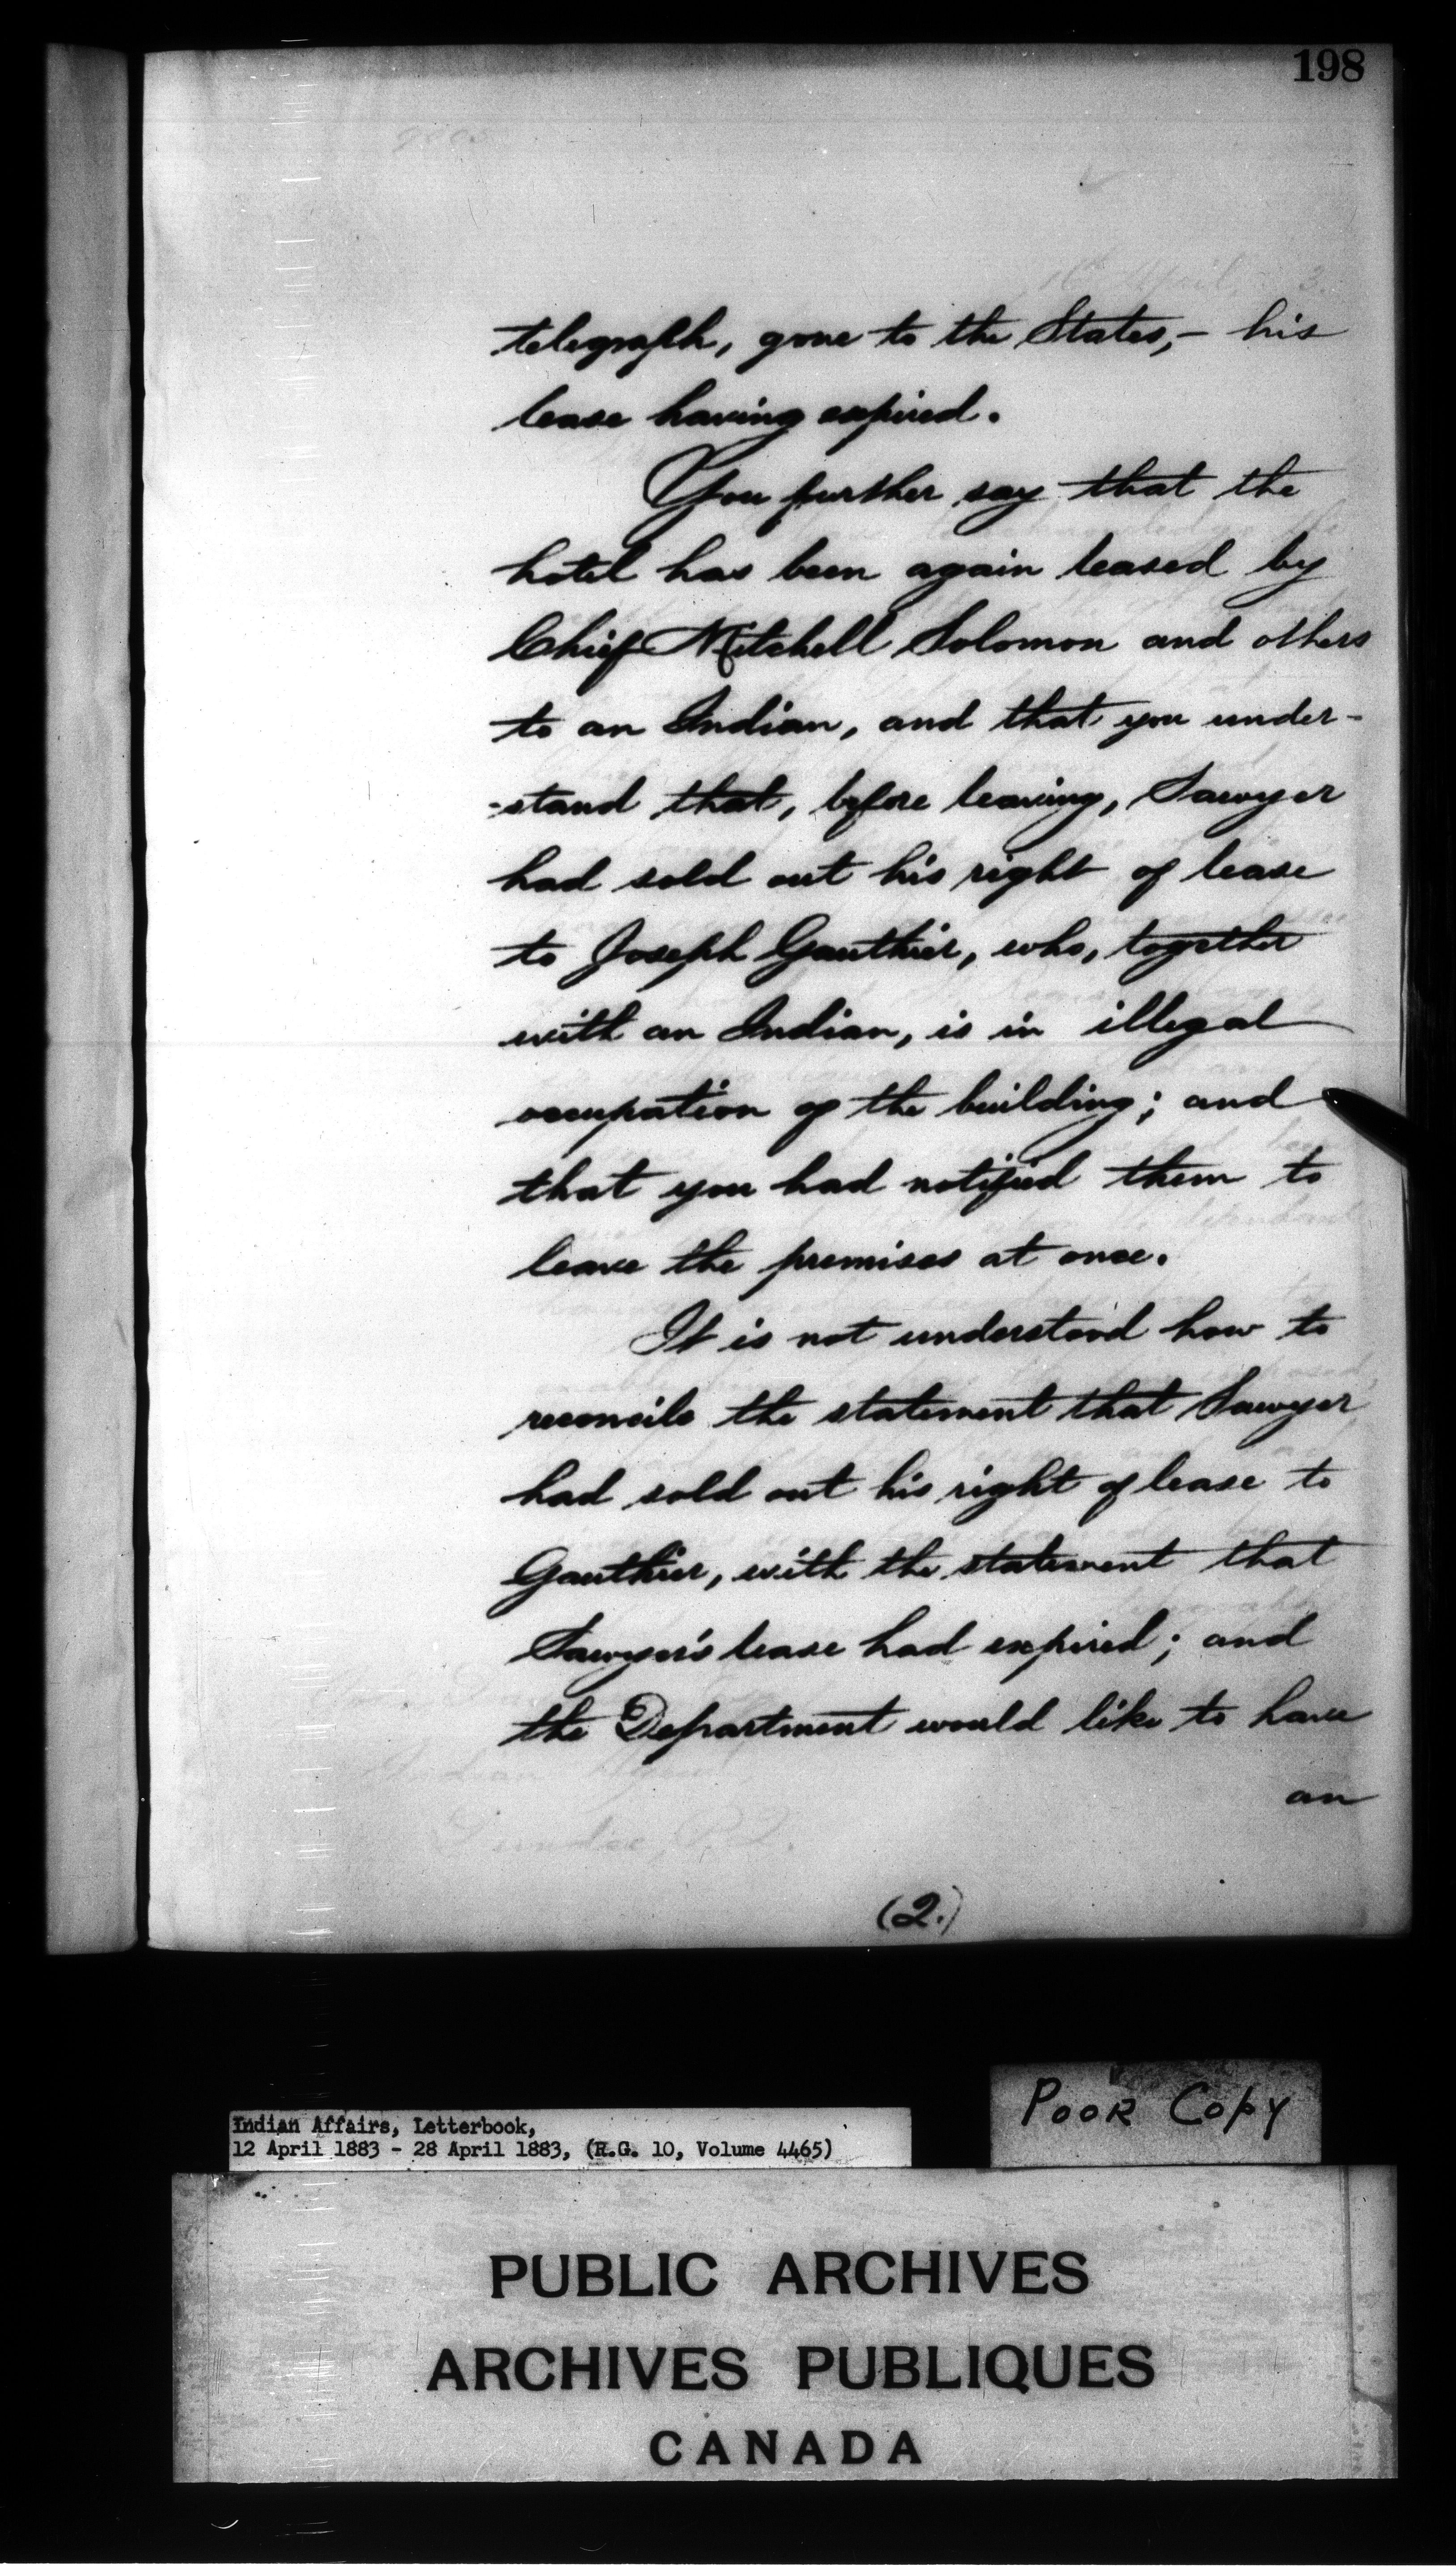 198
telegraph, gone to the States,- his
lease having expired.
You further say that the
hotel has been again leased by
Chief Mitchell Solomon and others
to an Indian, and that you under-
-stand that, before leaving, Sawyer
had sold out his right of lease
to Joseph Gauthier, who, together
with an Indian, is in illegal
occupation of the building; and
that you had notified them to
leave the premises at once.
It is not understood how to
reconcile the statement that Sawyer
had sold out his right of lease to
Gauthier, with the statement that
Sawyer's lease had expired; and
the Department would like to have
an
(2.)
Poor Copy
Indian Affairs, Letterbook,
12 April 1883 - 28 April 1883, (R.G. 10, Volume 4465)
PUBLIC ARCHIVES
ARCHIVES PUBLIQUES
CANADA